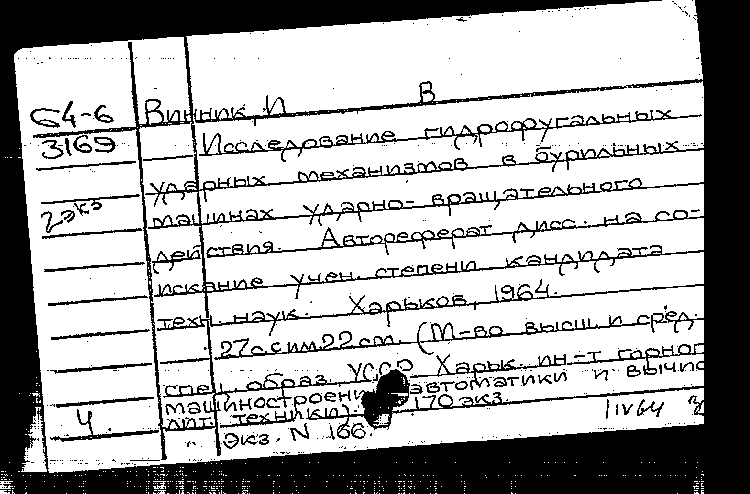 В
64-6 Винник, И
3169 Исследование гидрофугальных
ударных механизмов в бурильных
2 экз машинах ударно-вращательного
действия. Автореферат дисс. на со-
искание учен. степени кандидата
техн. наук. Харьков, 1964.
27с. с илл. 22 см. (М-во высш. и сред.
спец. образ. УССР Харьк. ин-т горног
машиностроени автоматики и вычис
лит. техники). 170 экз.
Ч
Экз. N 166.
1 IV 64